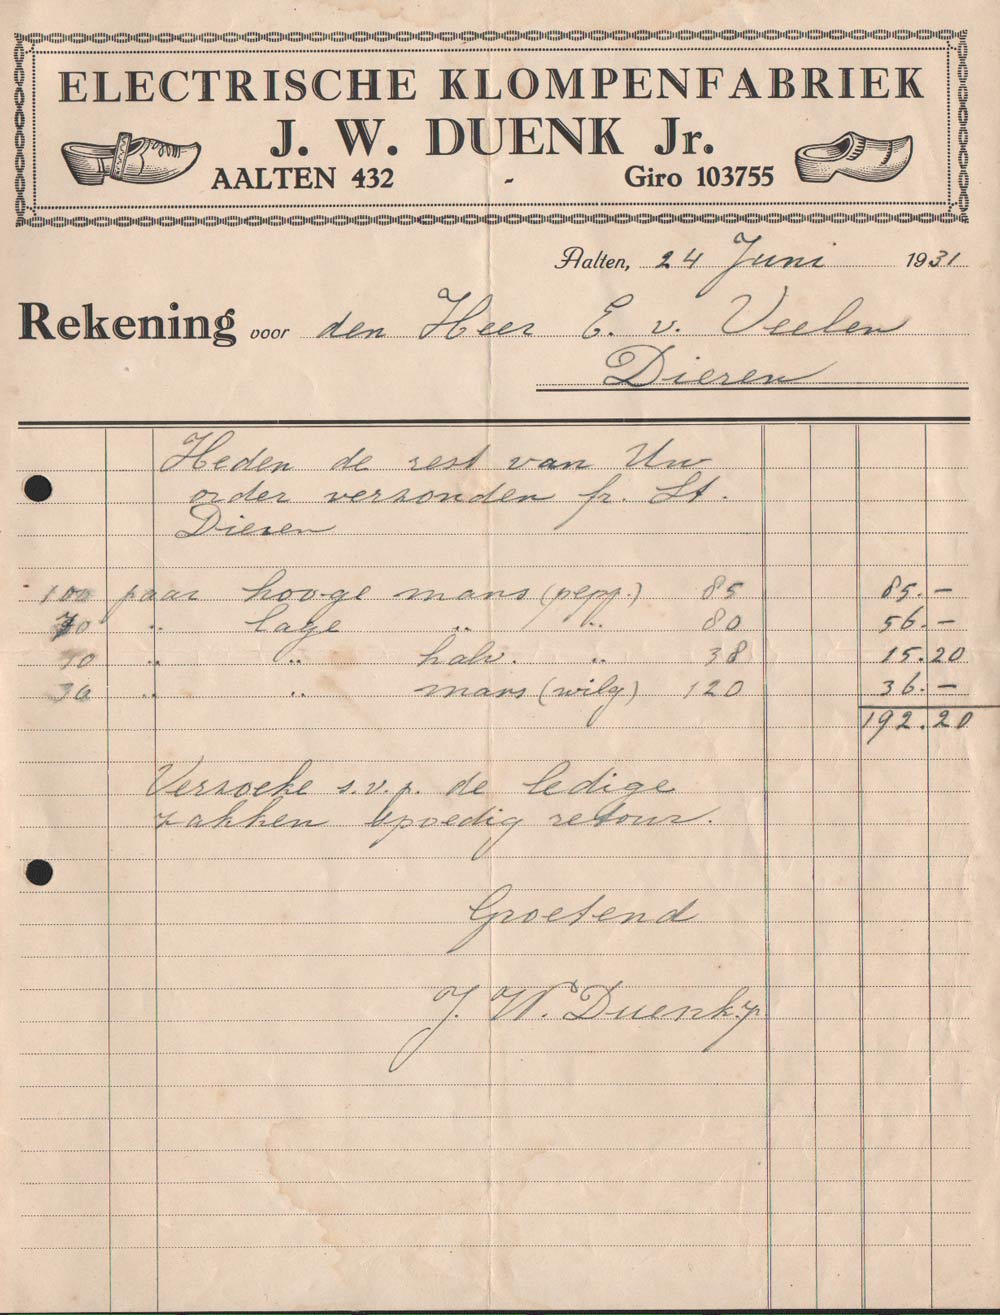 ELECTRISCHE KLOMPENFABRIEK
J. W. DUENK Jr.
AALTEN 432 - Giro 103755
Aalten, 24 Juni 1931
Rekening voor den Heer E. v. Veelen
Dieren
Heden de rest van Uw
order verzonden fr. St.
Dieren
100 paar hooge mans (pepp.) 85 85.-
70 " lage " " 80 56.-
40 " " halv. " 38 15.20
30 " " mans (wilg) 120 36.-
192.20
Verzoeke s.v.p. de ledige
zakken spoedig retour.
Groetend
J. W. Duenk jr